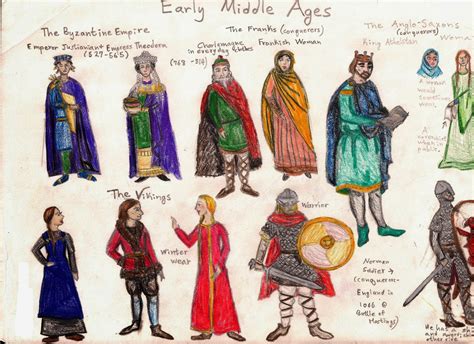 Early Middle Ages
The Byzantine Empire
Emperor Justinian I Empress Theodora
(527-565)
The Franks (conquerers)
Charlemagne Frankish Woman
in everyday clothes
(768 - 814)
The Anglo-Saxons
(conquerers)
King Athelstan
Woman
A woman
would
sometimes
wear
A
when in
public.
The Vikings
Winter
wear
Warrior
Norman
Soldier →
(conquerer
England in
1066 @
Battle of
Hastings)
He has a
and
other side